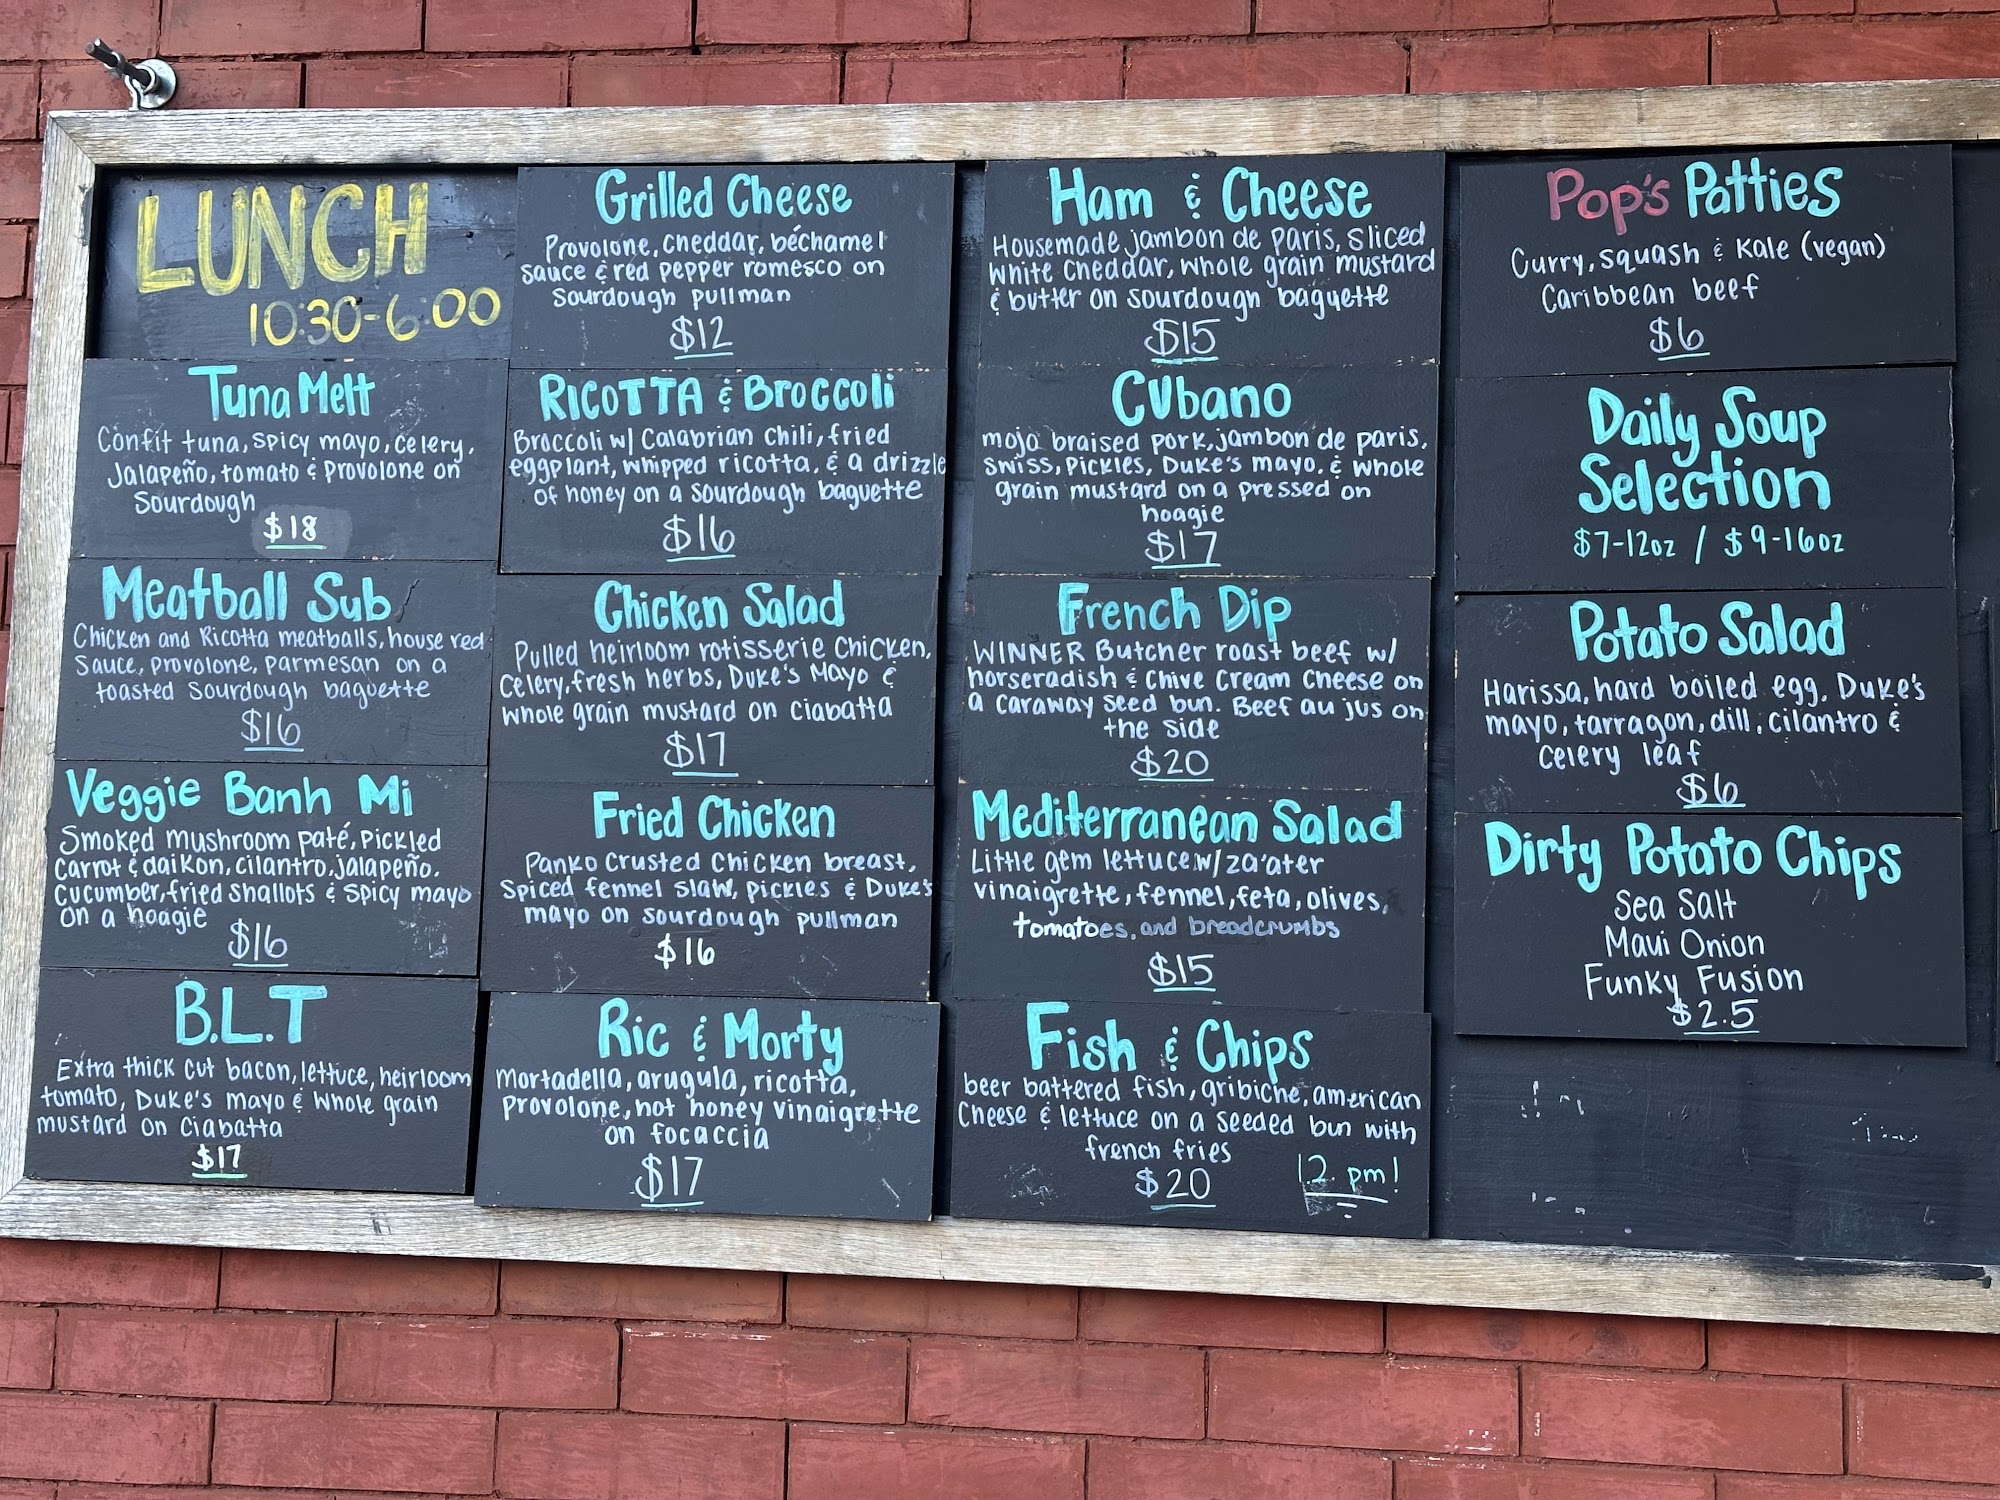 LUNCH
10:30-6:00
Tuna Melt
Confit tuna, spicy mayo, celery,
Jalapeño, tomato & Provolone on
Sourdough
$18
Meatball Sub
Chicken and Ricotta meatballs, house red
Sauce, provolone, parmesan on a
toasted Sourdough baguette
$16
Veggie Banh Mi
Smoked mushroom paté, Pickled
Carrot & daikon, cilantro, jalapeño.
Cucumber, fried shallots & spicy mayo
on a hoagie
$16
B.L.T
Extra thick cut bacon, lettuce, heirloom
tomato, Duke's mayo & whole grain
mustard on Ciabatta
$17
Grilled Cheese
Provolone, Cheddar, béchamel
Sauce & red pepper romesco on
Sourdough pullman
$12
RICOTTA & Broccoli
Broccoli w/ Calabrian Chili, fried
eggplant, whipped ricotta, & a drizzle
of honey on a Sourdough baguette
$16
Chicken Salad
Pulled heirloom rotisserie Chicken,
Celery, fresh herbs, Duke's Mayo &
whole grain mustard on Ciabatta
$17
Fried Chicken
Panko Crusted Chicken breast,
Spiced fennel Slaw, pickles & Duke's
mayo on sourdough pullman
$16
Ric & Morty
Mortadella, arugula, ricotta,
Provolone, hot honey vinaigrette
on focaccia
$17
Ham & Cheese
Housemade jambon de Paris, sliced
White Cheddar, whole grain mustard
& butter on Sourdough baguette
$15
CUbano
mojo braised pork, jambon de paris,
Swiss, Pickles, Duke's mayo, & whole
grain mustard on a pressed on
hoagie
$17
French Dip
WINNER Butcher roast beef w/
horseradish & Chive Cream Cheese on
a Caraway Seed bun. Beef au jus on
the side
$20
Mediterranean Salad
Little gem lettuce w/ za'ater
vinaigrette, fennel, feta, olives,
tomatoes, and breadcrumbs
$15
Fish & Chips
beer battered fish, gribiche, american
Cheese & lettuce on a seeded bun with
french fries
$20 12 pm!
Pop's Patties
Curry, squash & Kale (vegan)
Caribbean beef
$6
Daily Soup
Selection
$7-12oz / $9-16oz
Potato Salad
Harissa, hard boiled egg, Duke's
mayo, tarragon, dill, cilantro &
Celery leaf
$6
Dirty Potato Chips
Sea Salt
Maui Onion
Funky Fusion
$2.5